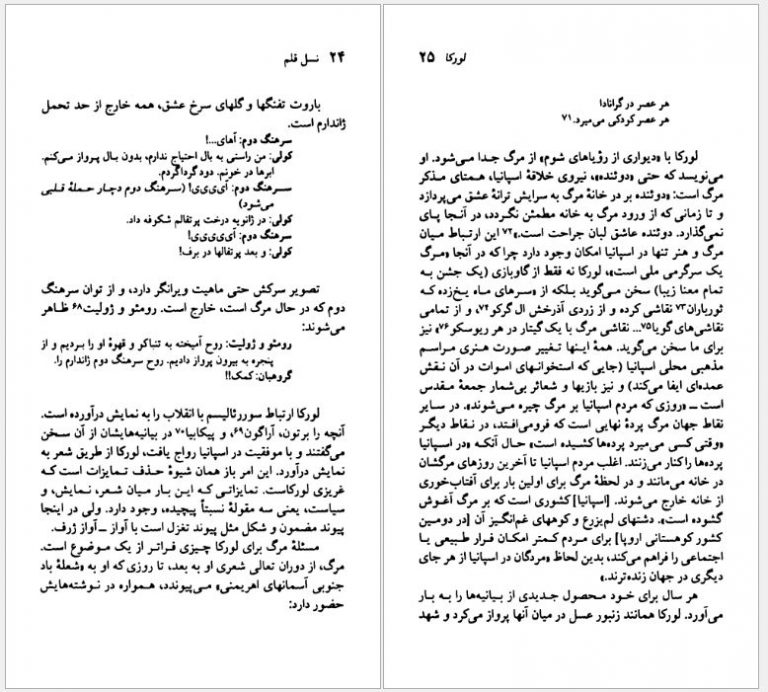 ۲۴ نسل قلم
باروت تفنگها و گلهای سرخ عشق، همه خارج از حد تحمل
ژاندارم است.
سرهنگ دوم: آهای...!
کولی: من راستی به بال احتیاج ندارم، بدون بال پرواز می‌کنم.
ابرها در خونم. دود گرداگردم.
سرهنگ دوم: آی‌ی‌ی‌ی! (سرهنگ دوم دچار حملهٔ قلبی
می‌شود)
کولی: در ژانویه درخت پرتقالم شکوفه داد.
سرهنگ دوم: آی‌ی‌ی‌ی‌ی!
کولی: و بعد پرتقالها در برف!
تصویر سرکش حتی ماهیت ویرانگر دارد، و از توان سرهنگ
دوم که در حال مرگ است، خارج است. رومئو و ژولیت۶۸ ظاهر
می‌شوند:
رومئو و ژولیت: روح آمیخته به تنباکو و قهوهٔ او را بردیم و از
پنجره به بیرون پرواز دادیم. روح سرهنگ دوم ژاندارم را.
گروهبان: کمک!!
لورکا ارتباط سوررئالیسم با انقلاب را به نمایش درآورده است.
آنچه را برتون، آراگون۶۹، و پیکابیا۷۰ در بیانیه‌هایشان از آن سخن
می‌گفتند و با موفقیت در اسپانیا رواج یافت، لورکا از طریق شعر به
نمایش درآورد. این امر باز همان شیوهٔ حذف تمایزات است که
غریزی لورکاست. تمایزاتی که این بار میان شعر، نمایش، و
سیاست، یعنی سه مقولهٔ نسبتاً پیچیده، وجود دارد. ولی در اینجا
پیوند مضمون و شکل مثل پیوند تغزل است با آواز ــ آواز ژرف.
مسئلهٔ مرگ برای لورکا چیزی فراتر از یک موضوع است.
مرگ، از دوران تعالی شعری او به بعد، تا روزی که او به «شعلهٔ باد
جنوبی آسمانهای اهریمنی» می‌پیوندد، همواره در نوشته‌هایش
حضور دارد:
لورکا ۲۵
هر عصر در گرانادا
هر عصر کودکی می‌میرد.۷۱
لورکا با «دیواری از رؤیاهای شوم» از مرگ جدا می‌شود. او
می‌نویسد که حتی «دوئنده»، نیروی خلاقهٔ اسپانیا، همتای مذکر
مرگ است: «دوئنده بر در خانهٔ مرگ به سرایش ترانهٔ عشق می‌پردازد
و تا زمانی که از ورود مرگ به خانه مطمئن نگردد، در آنجا پای
نمی‌گذارد. دوئنده عاشق لبان جراحت است.»۷۲ این ارتباط میان
مرگ و هنر تنها در اسپانیا امکان وجود دارد چرا که در آنجا «مرگ
یک سرگرمی ملی است»، لورکا نه فقط از گاوبازی (یک جشن به
تمام معنا زیبا) سخن می‌گوید بلکه از «سرهای ماه یخ‌زده که
ثورباران۷۳ نقاشی کرده و از زردی آذرخش ال گرکو۷۴، و از تمامی
نقاشی‌های گویا۷۵... نقاشی مرگ با یک گیتار در هر ریوسکو۷۶» نیز
برای ما سخن می‌گوید. همهٔ اینها تغییر صورت هنری مراسم
مذهبی محلی اسپانیا (جایی که استخوانهای اموات در آن نقش
عمده‌ای ایفا می‌کند) و نیز بازیها و شعائر بی‌شمار جمعهٔ مقدس
است ــ «روزی که مردم اسپانیا بر مرگ چیره می‌شوند». در سایر
نقاط جهان مرگ پردهٔ نهایی است که فرومی‌افتد، در نقاط دیگر
«وقتی کسی می‌میرد پرده‌ها کشیده است» حال آنکه «در اسپانیا
پرده‌ها را کنار می‌زنند. اغلب مردم اسپانیا تا آخرین روزهای مرگشان
در خانه می‌مانند و در لحظهٔ مرگ برای اولین بار برای آفتاب‌خوری
از خانه خارج می‌شوند. [اسپانیا] کشوری است که بر مرگ آغوش
گشوده است». دشتهای لم‌یزرع و کوههای غم‌انگیز آن [در دومین
کشور کوهستانی اروپا] برای مردم کمتر امکان فرار طبیعی یا
اجتماعی را فراهم می‌کند، بدین لحاظ «مردگان در اسپانیا از هر جای
دیگری در جهان زنده‌ترند.»
هر سال برای خود محصول جدیدی از بیانیه‌ها را به بار
می‌آورد. لورکا همانند زنبور عسل در میان آنها پرواز می‌کرد و شهد